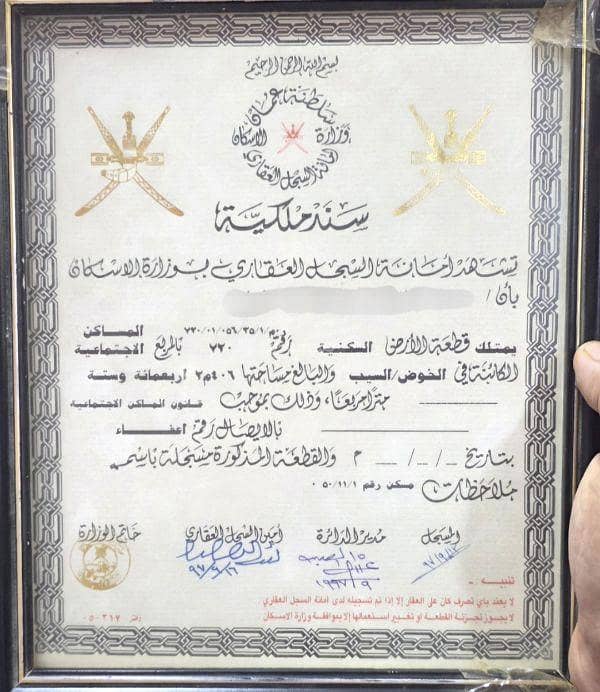 بسم الله الرحمن الرحيم
سلطنة عمان
وزارة الاسكان
أمانة السجل العقاري
سند ملكية
تشهد أمانة السجل العقاري بوزارة الاسكان
بأن /
يمتلك قطعة الأرض السكنية رقم ٧٣٠ بالمربع المساكن الاجتماعية
الكائنة في الخوض/السيب والبالغ مساحتها ٤٠٦م٢ أربعمائة وستة
متراً مربعاً، وذلك بموجب قانون المساكن الاجتماعية
بالايصال رقم اعفاء
بتاريخ _/ _/ __ م والقطعة المذكورة مسجلة باسمه
ملاحظات مسكن رقم ٥٠/١١/١
المسجل مدير الدائرة أمين السجل العقاري خاتم الوزارة
تنبيه :ـ
لا يعتد بأي تصرف كان على العقار إلا إذا تم تسجيله لدى أمانة السجل العقاري
لا يجوز تجزئة القطعة أو تغيير استعمالها إلا بموافقة وزارة الاسكان